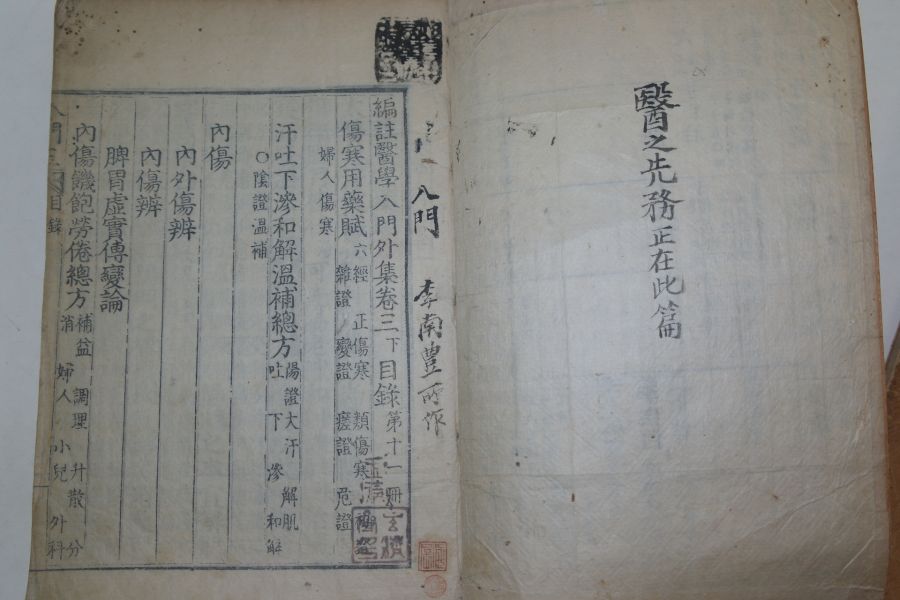 醫之先務正在此篇
入門 李南豊所作
編註醫學入門外集卷三下目錄 第十一冊
傷寒用藥賦 六經 正傷寒 類傷寒
雜證 變證 瘥證 危證
婦人傷寒
汗吐下滲和解溫補總方 陽證大汗 解肌
吐 下 滲 和解
○陰證溫補
內傷
內外傷辨
內傷辨
脾胃虛實傳變論
內傷饑飽勞倦總方 補益 調理 升散 分
消 婦人 小兒 外科
目錄